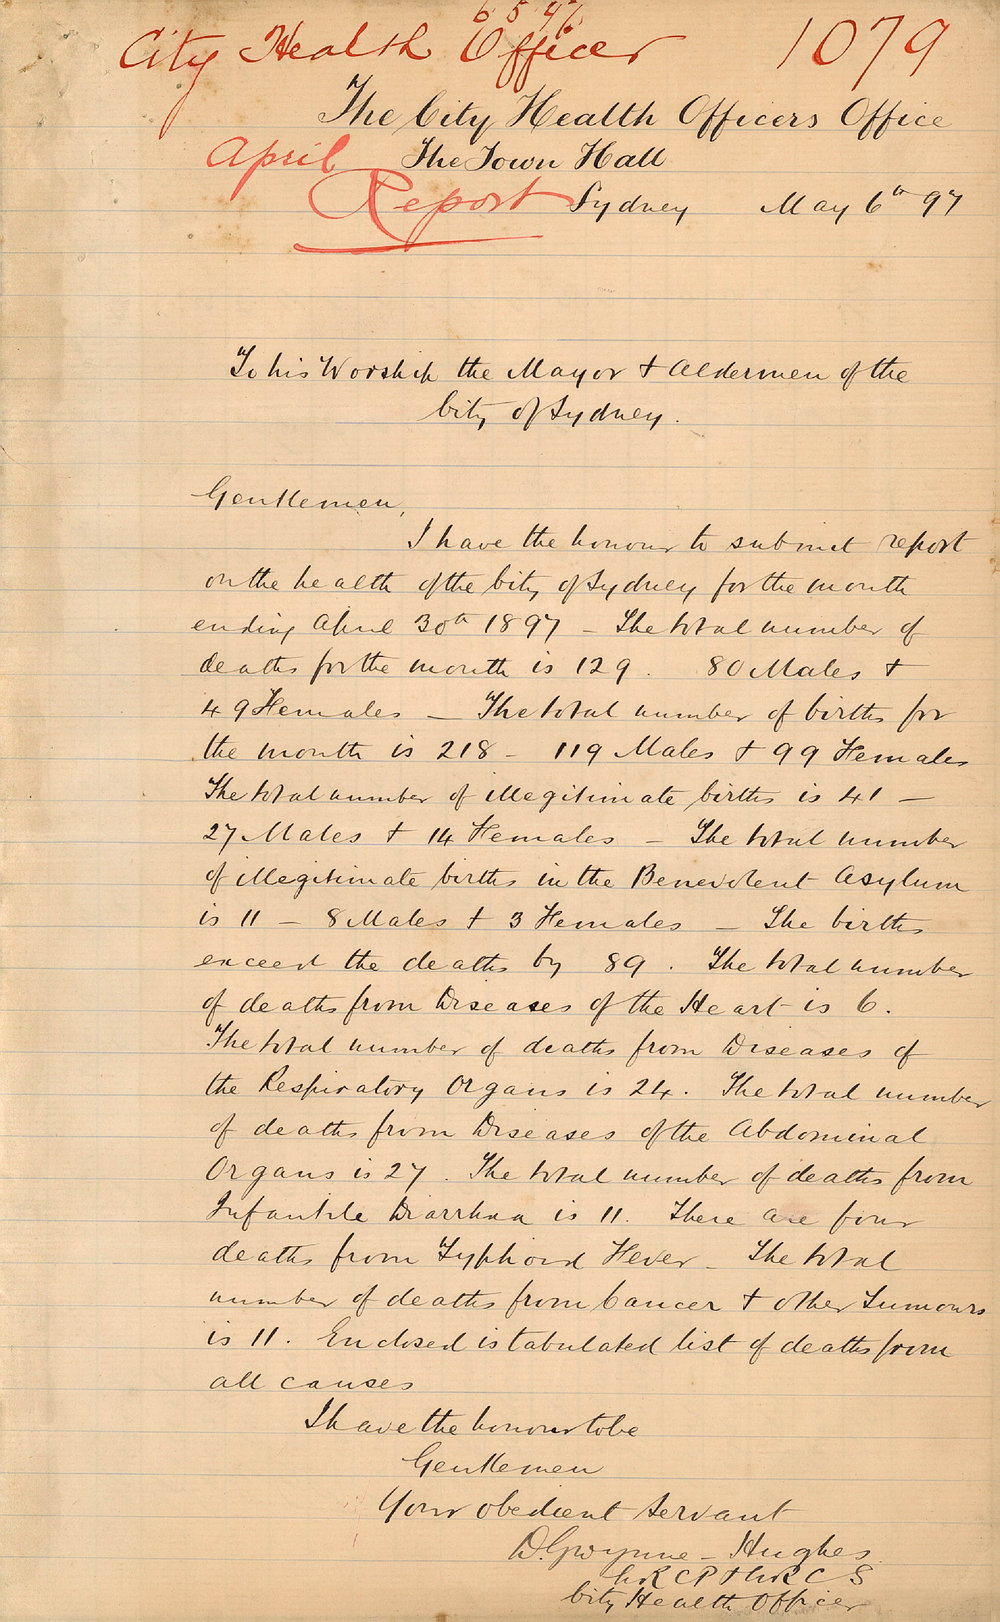 6 5 4/6
City Health Officer 1079
The City Health Officers Office
April The Town Hall
Report Sydney May 6th 97
To his Worship the Mayor & Aldermen of the
City of Sydney.
Gentlemen,
I have the honour to submit report
on the health of the City of Sydney for the month
ending April 30th 1897 – The total number of
deaths for the month is 129. 80 Males &
49 Females – The total number of births for
the month is 218 – 119 Males & 99 Females
The total number of illegitimate births is 41 –
27 Males & 14 Females – The total number
of illegitimate births in the Benevolent Asylum
is 11 – 8 Males & 3 Females – The births
exceed the deaths by 89. The total number
of deaths from Diseases of the Heart is 6.
The total number of deaths from Diseases of
the Respiratory Organs is 24. The total number
of deaths from Diseases of the Abdominal
Organs is 27. The total number of deaths from
Infantile Diarrhœa is 11. There are four
deaths from Typhoid Fever – The total
number of deaths from Cancer & other Tumours
is 11. Enclosed is tabulated list of deaths from
all causes
I have the honour to be
Gentlemen
Your obedient Servant
D. Gwynne – Hughes
LRCP & LRCS
City Health Officer